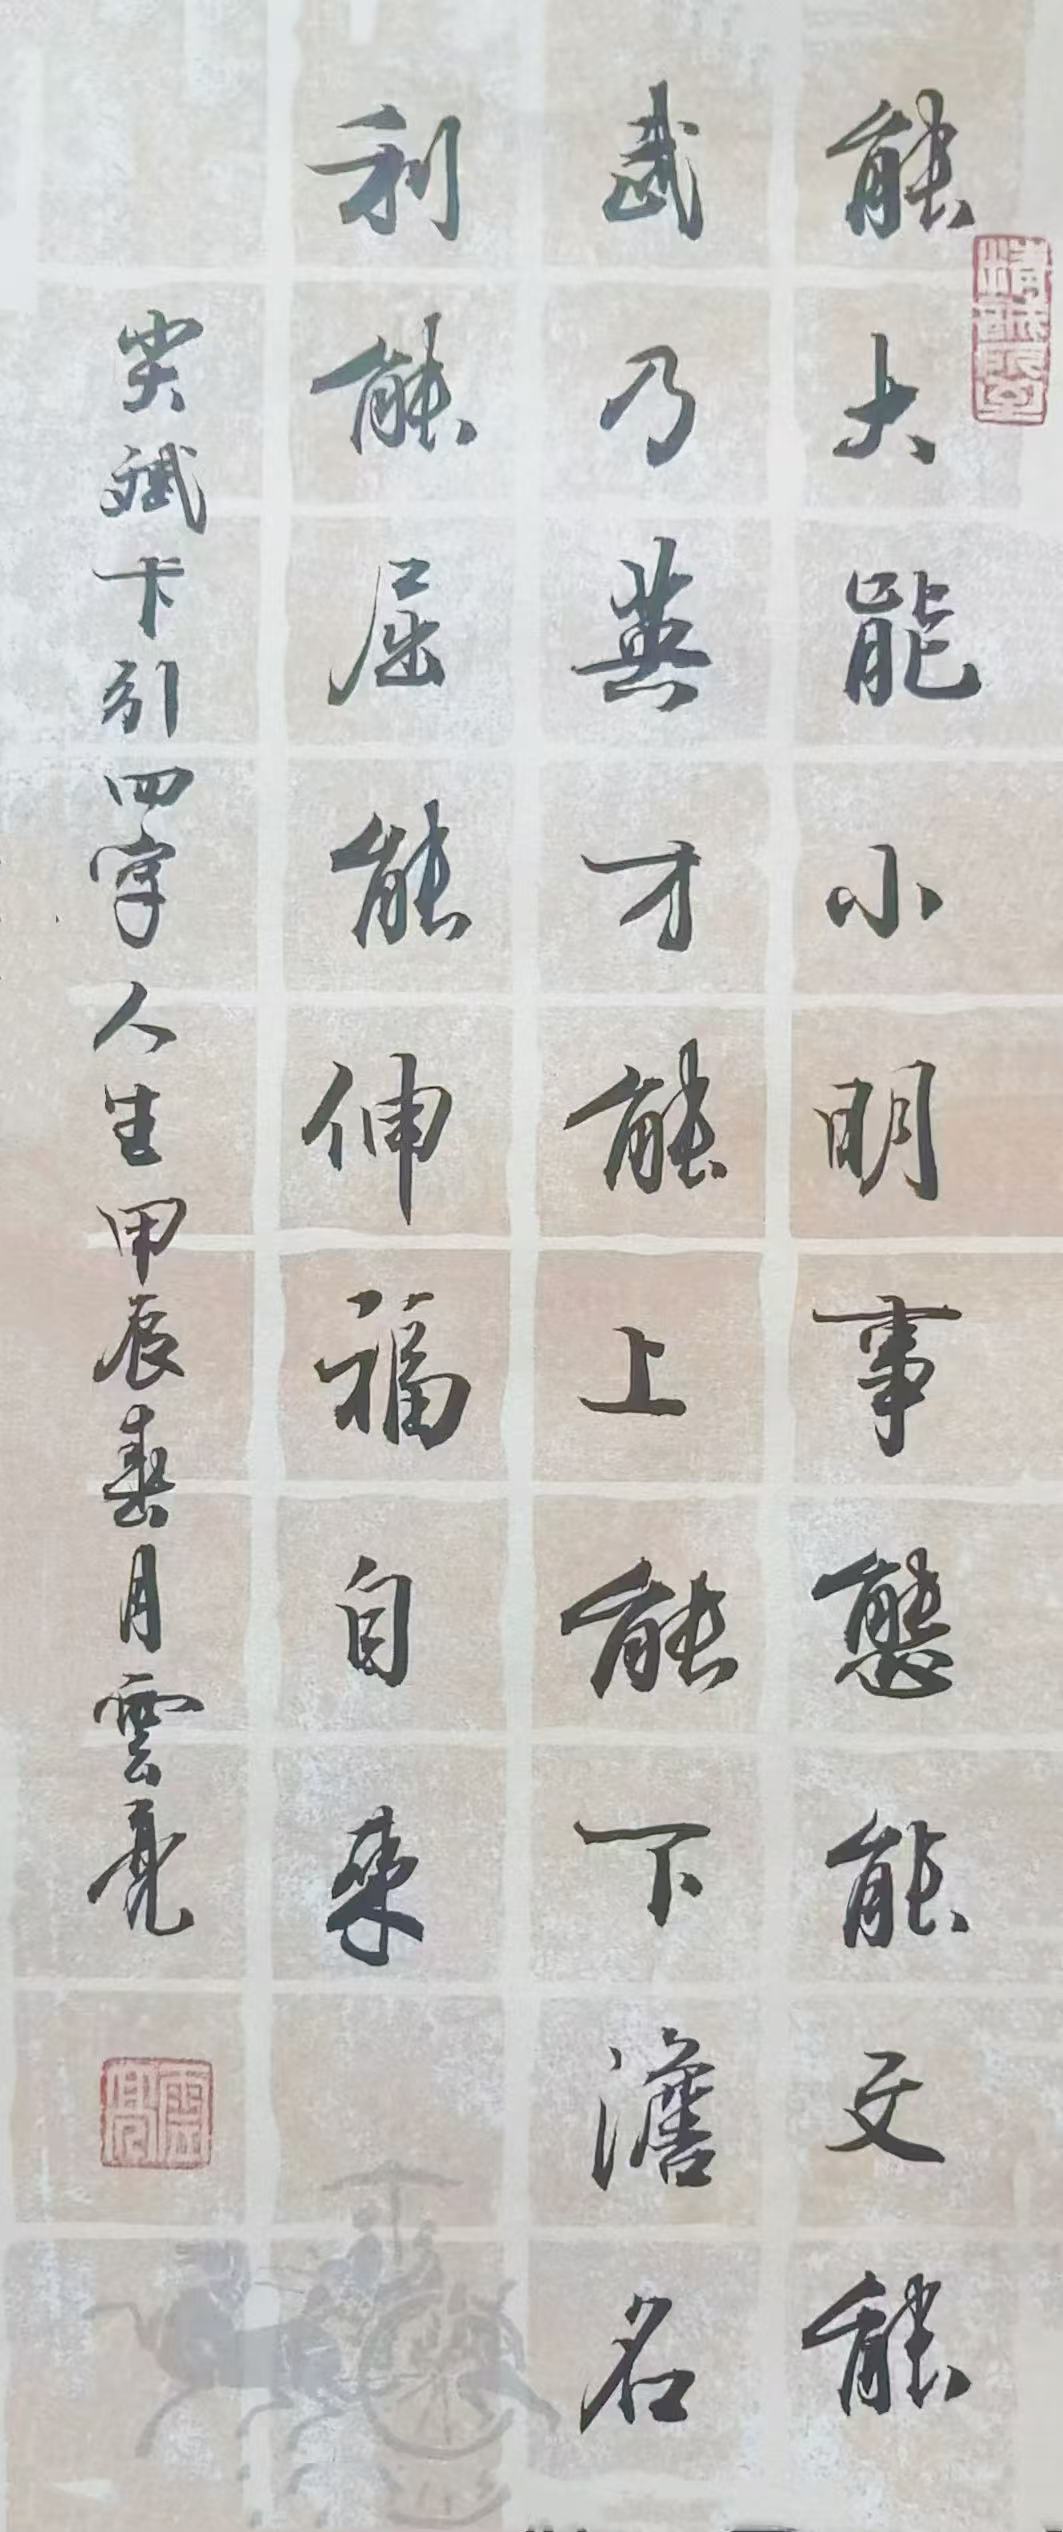 能大能小明事態能文能
武乃英才能上能下澹名
利能屈能伸福自來
尖斌卡引四字人生甲辰春月雲亮
雲亮